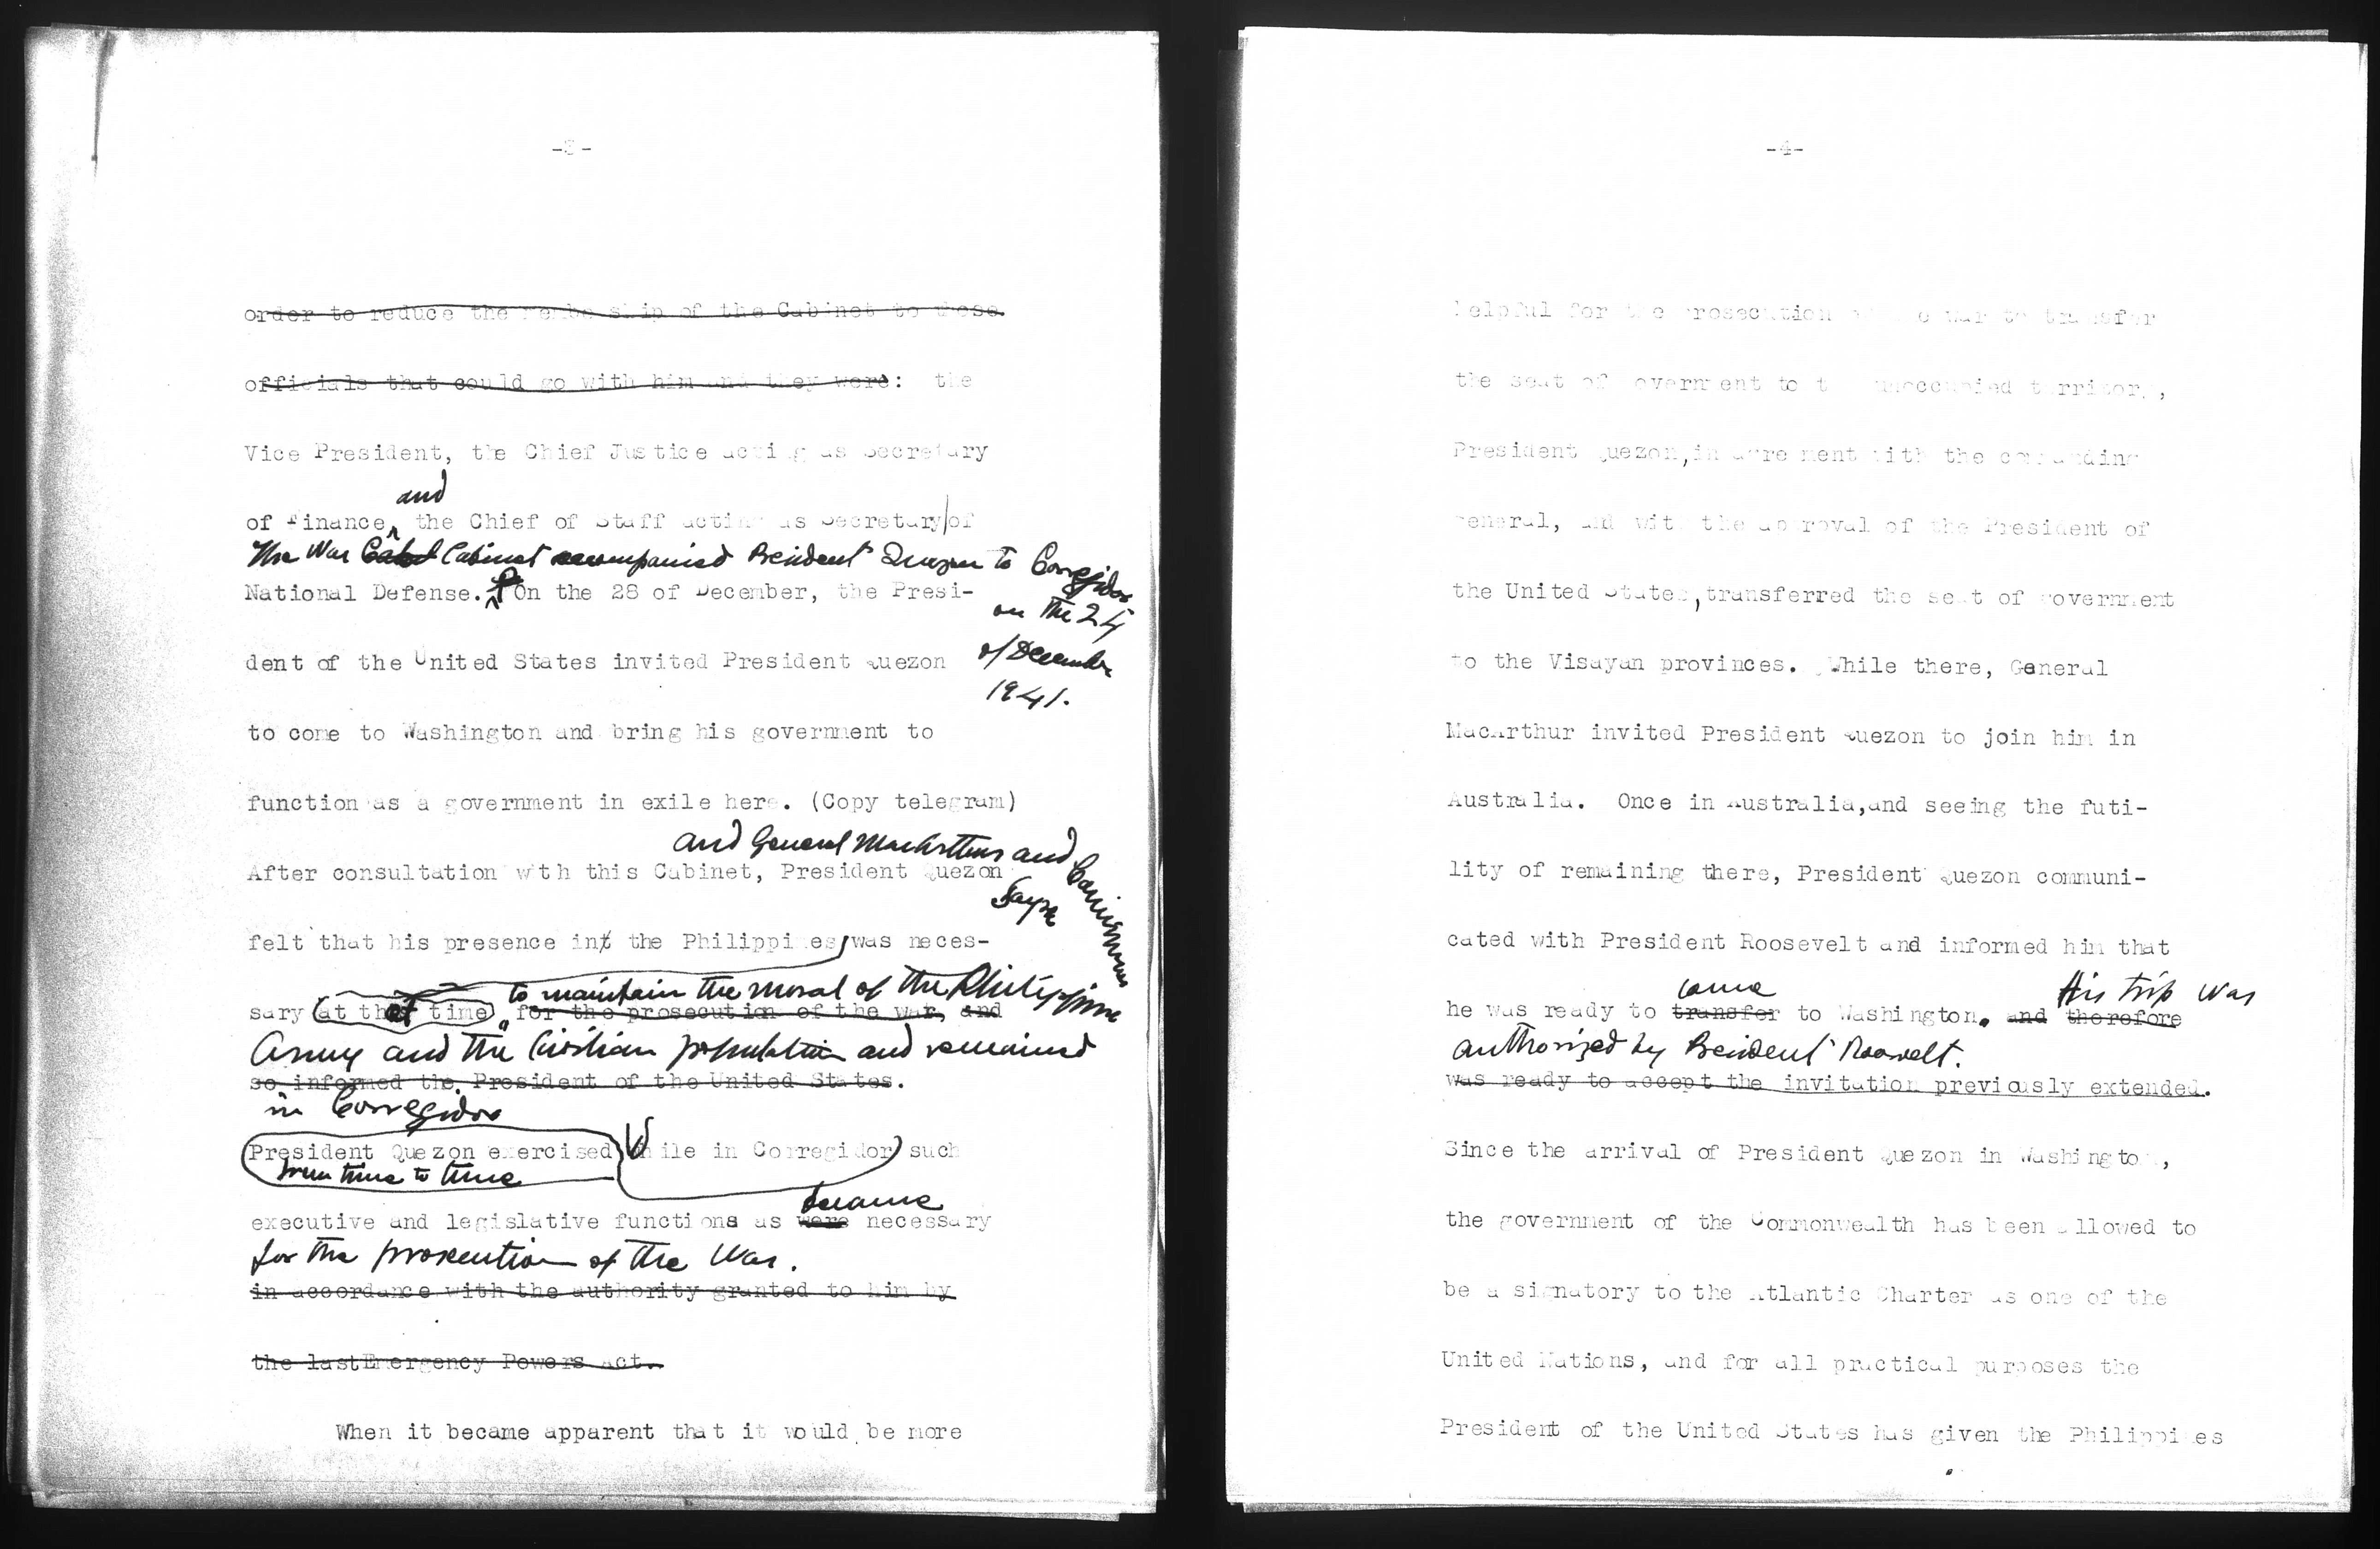 -3-
order to reduce the membership of the Cabinet to these
officials that could go with him and they were: the
Vice President, the Chief Justice acting as Secretary
and
of Finance, the Chief of Staff acting as Secretary of
The War Cabinet accompanied President Quezon to Corregidor
National Defense. On the 28 of December, the Presi-
on the 24
dent of the United States invited President Quezon
of December
1941.
to come to Washington and bring his government to
function as a government in exile here. (Copy telegram)
and General MacArthur and
After consultation with this Cabinet, President Quezon
Sayre
felt that his presence in the Philippines, was neces-
to maintain the moral of the Philippine
sary at that time for the prosecution of the war, and
Army and the Civilian population and remained
so informed the President of the United States.
in Corregidor
President Quezon exercised While in Corregidor) such
from time to time
became
executive and legislative functions as were necessary
for the prosecution of the War.
in accordance with the authority granted to him by
the last Emergency Powers Act.
When it became apparent that it would be more
-4-
helpful for the prosecution of the war to transfer
the seat of government to the unoccupied territory,
President Quezon, in agreement with the commanding
general, and with the approval of the President of
the United States, transferred the seat of government
to the Visayan provinces. While there, General
MacArthur invited President Quezon to join him in
Australia. Once in Australia, and seeing the futi-
lity of remaining there, President Quezon communi-
cated with President Roosevelt and informed him that
come His trip was
he was ready to transfer to Washington. and therefore
authorized by President Roosevelt.
was ready to accept the invitation previously extended.
Since the arrival of President Quezon in Washington,
the government of the Commonwealth has been allowed to
be a signatory to the Atlantic Charter as one of the
United Nations, and for all practical purposes the
President of the United States has given the Philippines